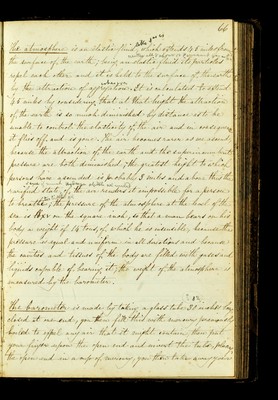 66
The atmosphere is an elastic fluid, which extends 45 miles from
the surface of the earth; being an elastic fluid its particles
repel each other and it is held to the surface of the earth
by the attraction of It is calculated to extend
45 miles by considering, that at that height the attraction
of the earth is so much diminished by distance as to be
unable to control the elasticity of the air and in consequence
it flies off and is gone; the air becomes rarer as we ascend
because the attraction of the earth and the superincumbent
pressure are both diminished; the greatest height to which
persons have ascended is probably 5 miles and above this the
rarified state of the air renders it impossible for a person
to breathe; the pressure of the atmosphere at the level of the
sea is 15 on the square inch, so that a man bears on his
body a weight of 14 tons, of which he is insensible, because the
pressure is equal and uniform in all directions and because
the cavities and tissues of the body are filled with gases and
liquids capable of bearing it; the weight of the atmosphere is
measured by the barometer.
The barometer is made by taking a glass tube 32 inches long
closed at one end, you then fill this with mercury previously
boiled to expel any air that it might contain then put
your finger upon the open end and invert the tube, placing
the open end in a cup of mercury, you then take away your